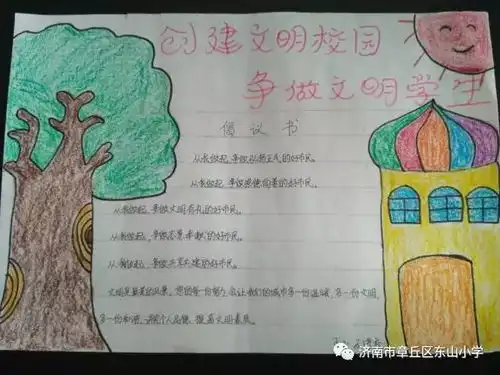 创建文明校园
争做文明学生
倡议书
从我做起，争做弘扬正气的好市民。
从我做起，争做崇德向善的好市民。
从我做起，争做文明有礼的好市民。
从我做起，争做志愿奉献的好市民。
从我做起，争做共享共建的好市民。
文明是最美的风景，您的每一份努力，会让我们的城市多一份温暖，多一份文明，
多一份和谐。个人品德，提高文明素质。
济南市章丘区东山小学